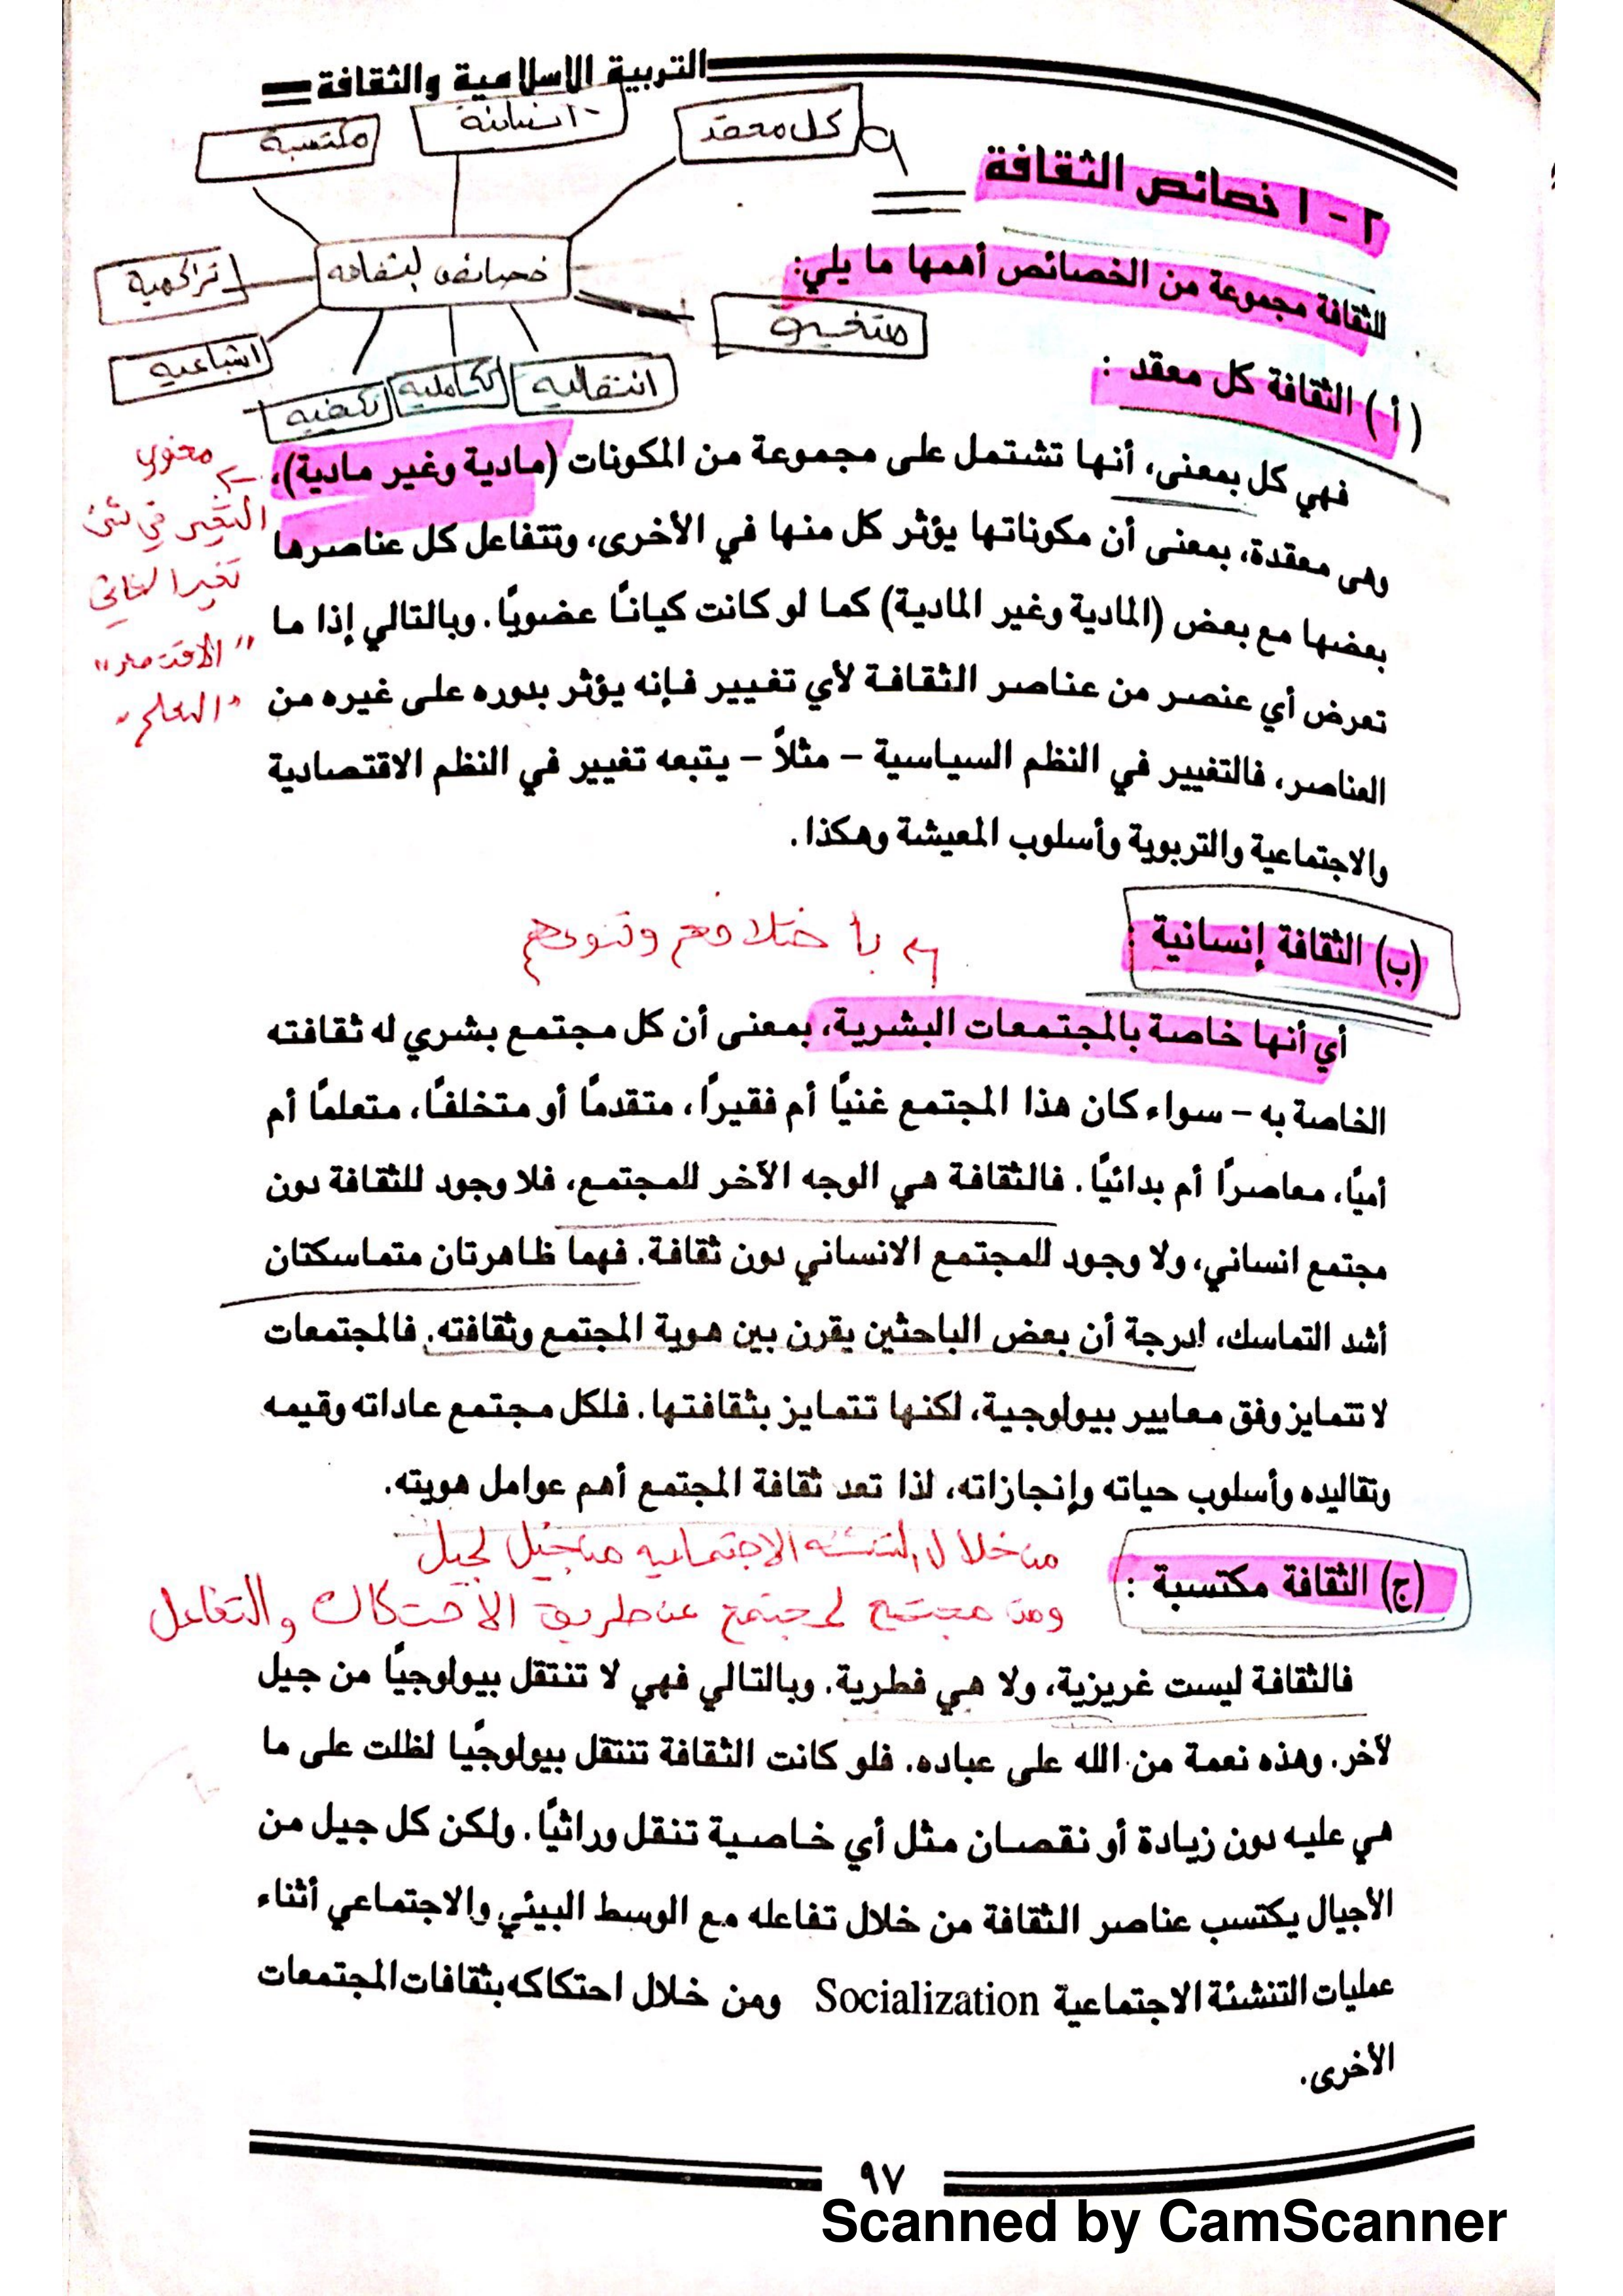 التربية الاسلامية والثقافة
كل معقد
انسانية
مكتسبة
خصائص الثقافة
تراكمية
اشباعية
تكيفية
تكاملية
انتقالية
متغيرة
٢ - ١ خصائص الثقافة
للثقافة مجموعة من الخصائص أهمها ما يلي:
( أ ) الثقافة كل معقد :
فهي كل بمعنى، أنها تشتمل على مجموعة من المكونات (مادية وغير مادية)،
وهى معقدة، بمعنى أن مكوناتها يؤثر كل منها في الأخرى، وتتفاعل كل عناصرها
بعضها مع بعض (المادية وغير المادية) كما لو كانت كيانًا عضويًا. وبالتالي إذا ما
تعرض أي عنصر من عناصر الثقافة لأي تغيير فإنه يؤثر بدوره على غيره من
العناصر، فالتغيير في النظم السياسية – مثلاً – يتبعه تغيير في النظم الاقتصادية
والاجتماعية والتربوية وأسلوب المعيشة وهكذا.
التغير في
(ب) الثقافة إنسانية :
باختلافهم وتنوعهم
أي أنها خاصة بالمجتمعات البشرية، بمعنى أن كل مجتمع بشري له ثقافته
الخاصة به – سواء كان هذا المجتمع غنيًا أم فقيرًا، متقدمًا أو متخلفًا، متعلمًا أم
أميًا، معاصرًا أم بدائيًا. فالثقافة هي الوجه الآخر للمجتمع، فلا وجود للثقافة دون
مجتمع انساني، ولا وجود للمجتمع الانساني دون ثقافة. فهما ظاهرتان متماسكتان
أشد التماسك، لدرجة أن بعض الباحثين يقرن بين هوية المجتمع وثقافته. فالمجتمعات
لا تتمايز وفق معايير بيولوجية، لكنها تتمايز بثقافتها. فلكل مجتمع عاداته وقيمه
وتقاليده وأسلوب حياته وإنجازاته، لذا تعد ثقافة المجتمع أهم عوامل هويته.
(ج) الثقافة مكتسبة :
من خلال التنشئه الاجتماعيه من جيل لجيل
ومن مجتمع لمجتمع عن طريق الاحتكاك والتفاعل
فالثقافة ليست غريزية، ولا هي فطرية. وبالتالي فهي لا تنتقل بيولوجيًا من جيل
لآخر. وهذه نعمة من الله على عباده. فلو كانت الثقافة تنتقل بيولوجيًا لظلت على ما
هي عليه دون زيادة أو نقصان مثل أي خاصية تنقل وراثيًا. ولكن كل جيل من
الأجيال يكتسب عناصر الثقافة من خلال تفاعله مع الوسط البيئي والاجتماعي أثناء
عمليات التنشئة الاجتماعية Socialization ومن خلال احتكاكه بثقافات المجتمعات
الأخرى.
٩٧
Scanned by CamScanner